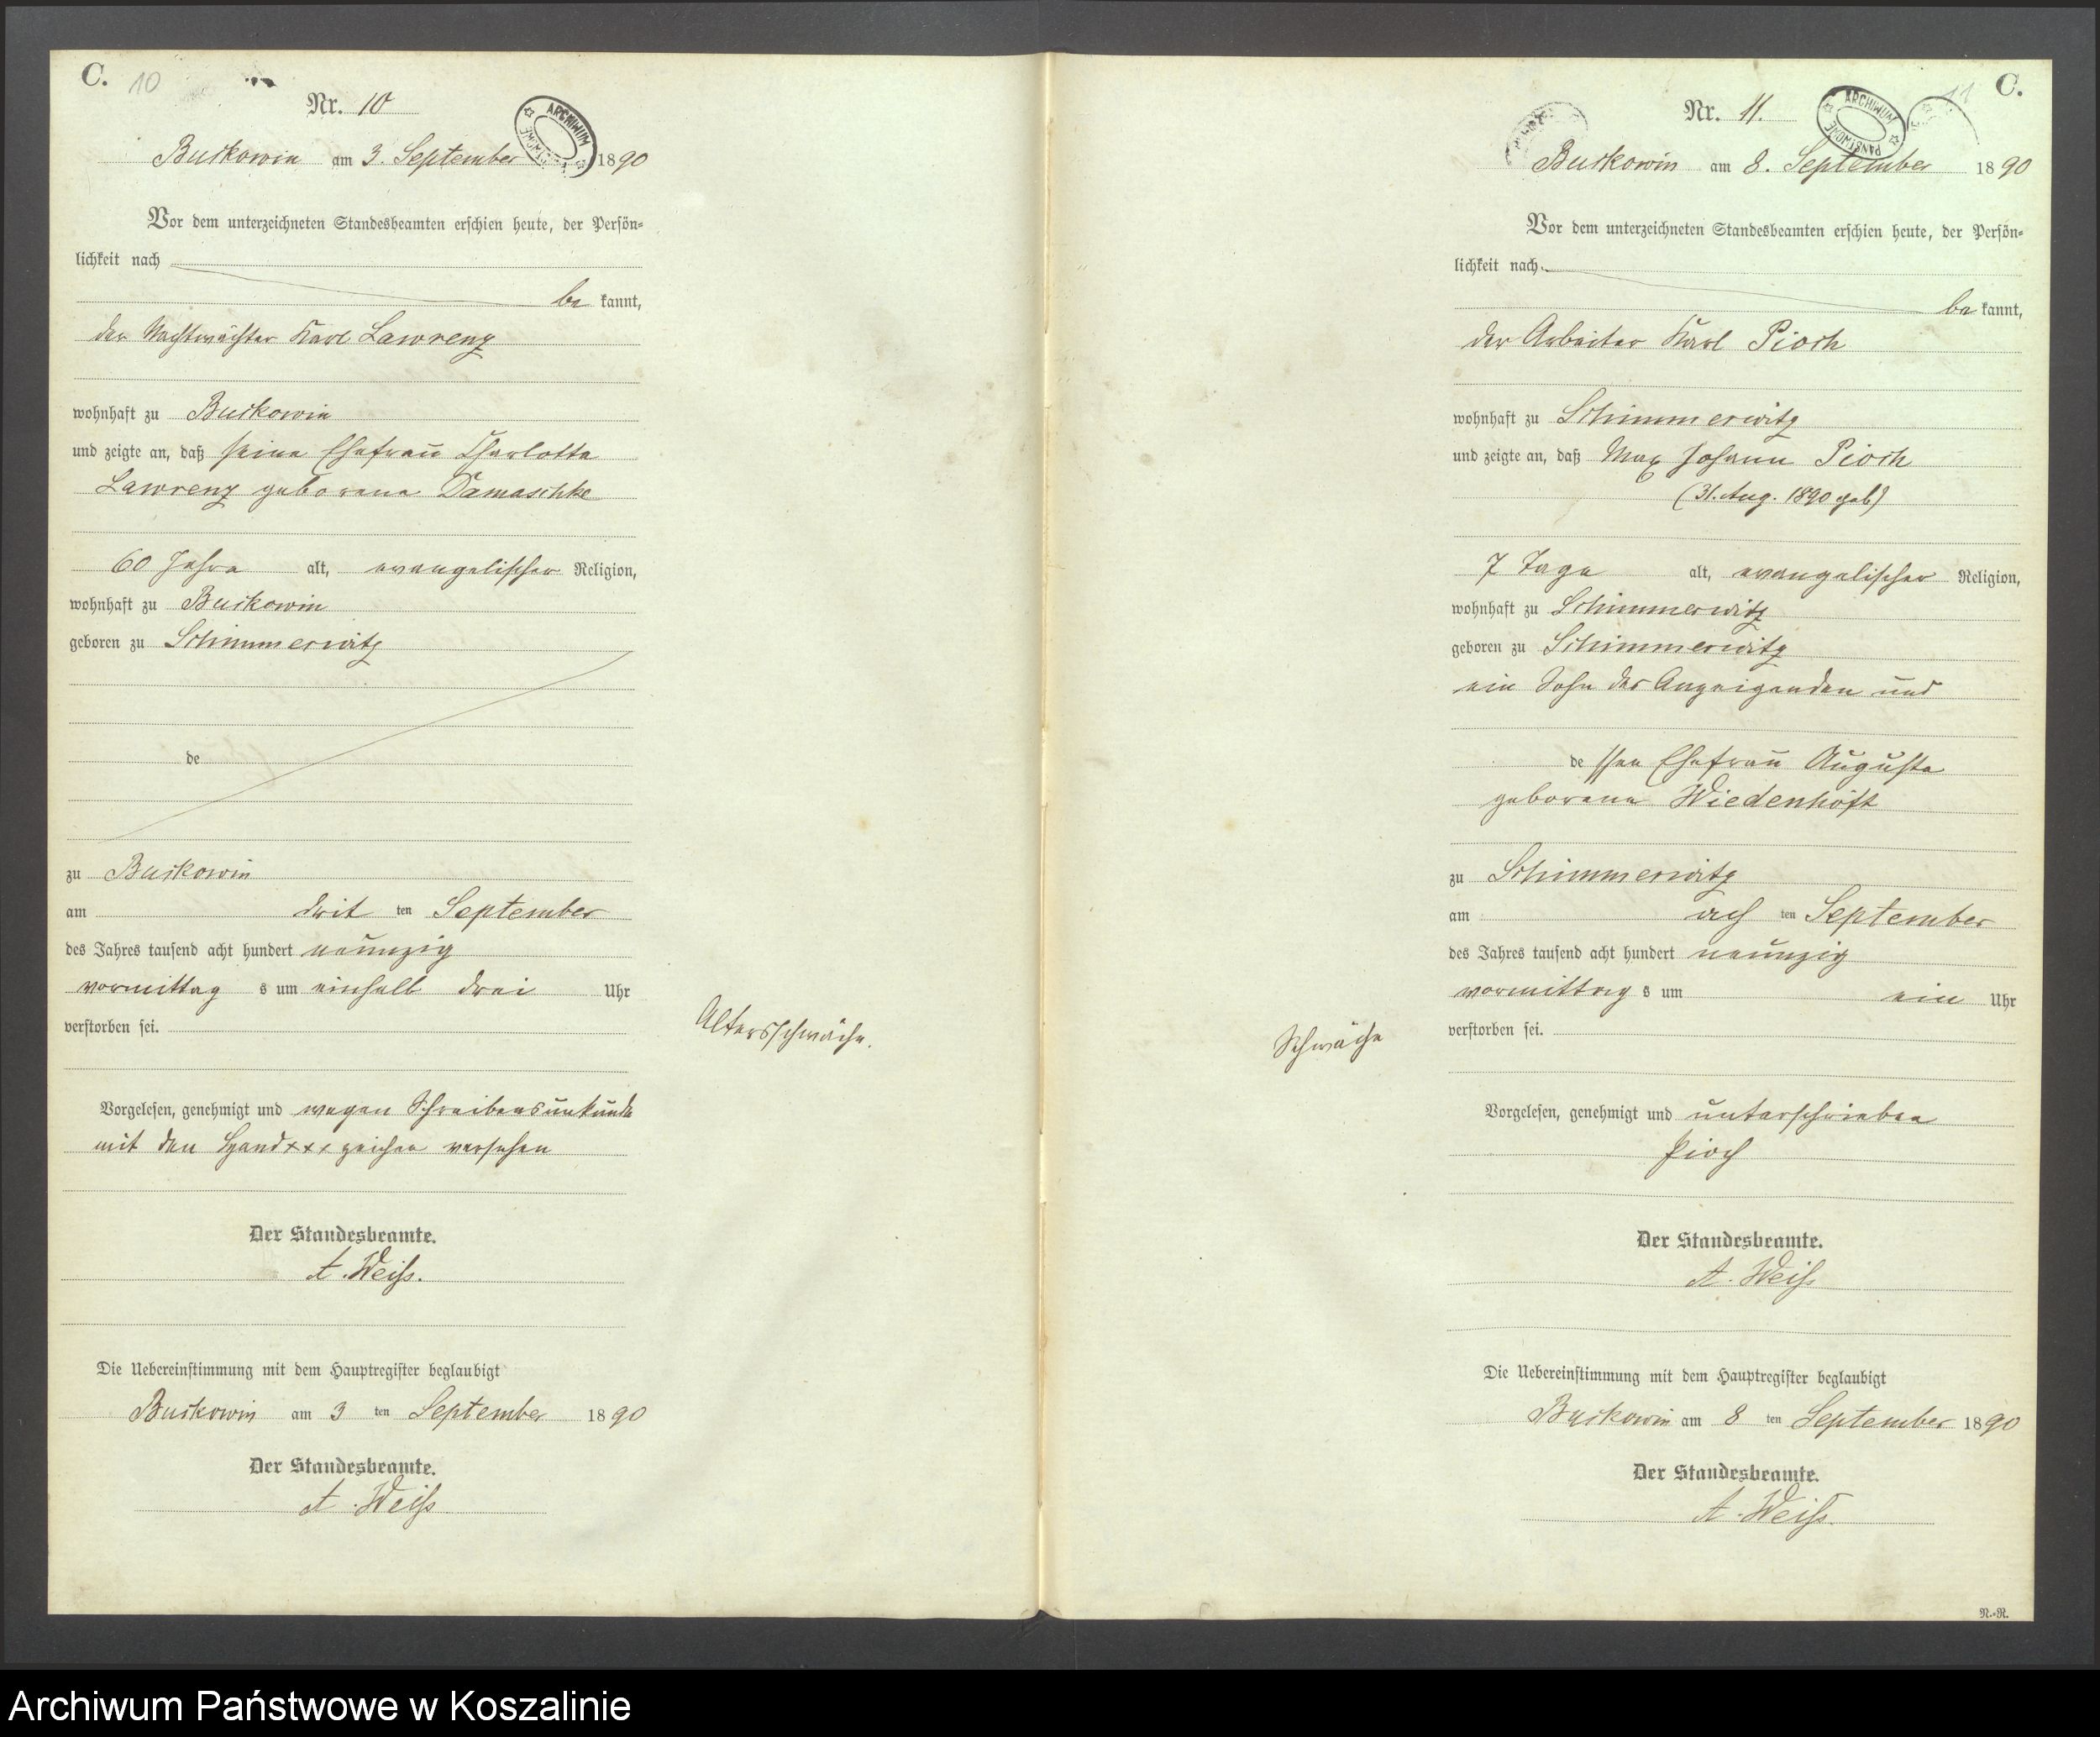 C. 10
Nr. 10
ARCHIWUM
Buckowin am 3. September 1890
Vor dem unterzeichneten Standesbeamten erschien heute, der Persön=
lichkeit nach
be kannt,
der Nachtwächter Karl Lawrenz
wohnhaft zu Buckowin
und zeigte an, daß seine Ehefrau Charlotte
Lawrenz geborene Damaschke
60 Jahre alt, evangelischer Religion,
wohnhaft zu Buckowin
geboren zu Schimmerwitz
de
zu Buckowin
am dritten September
des Jahres tausend acht hundert neunzig
vormittags um einhalb drei Uhr
verstorben sei.
Altersschwäche.
Vorgelesen, genehmigt und wegen Schreibensunkunde
mit den Hand+++zeichen versehen
Der Standesbeamte.
A. Weiß.
Die Uebereinstimmung mit dem Hauptregister beglaubigt
Buckowin am 3 ten September 1890
Der Standesbeamte.
A. Weiß
11 C.
Nr. 11.
ARCHIWUM PAŃSTWOWE
Buckowin am 8. September 1890
Vor dem unterzeichneten Standesbeamten erschien heute, der Persön=
lichkeit nach
be kannt,
der Arbeiter Karl Pioch
wohnhaft zu Schimmerwitz
und zeigte an, daß Max Johann Pioch
(31. Aug. 1890 geb)
7 Tage alt, evangelischer Religion,
wohnhaft zu Schimmerwitz
geboren zu Schimmerwitz
ein Sohn des Anzeigenden und
dessen Ehefrau Auguste
geborene Wiedenhöft
zu Schimmerwitz
am achten September
des Jahres tausend acht hundert neunzig
vormittags um ein Uhr
verstorben sei.
Schwäche
Vorgelesen, genehmigt und unterschrieben
Pioch
Der Standesbeamte.
A. Weiß
Die Uebereinstimmung mit dem Hauptregister beglaubigt
Buckowin am 8 ten September 1890
Der Standesbeamte.
A. Weiß.
N.=R.
Archiwum Państwowe w Koszalinie